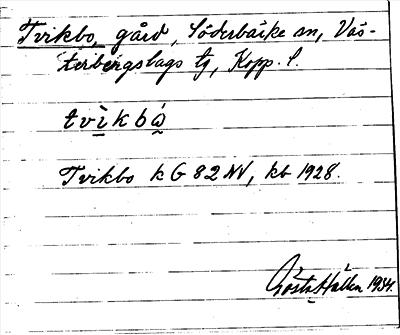 Tvikbo, gård, Söderbärke sn, Väs-
terbergslags tg, Kopp. l.
tvikbo
Tvikbo k G 82 NV, kb 1928.
Gösta Hallen 1934.